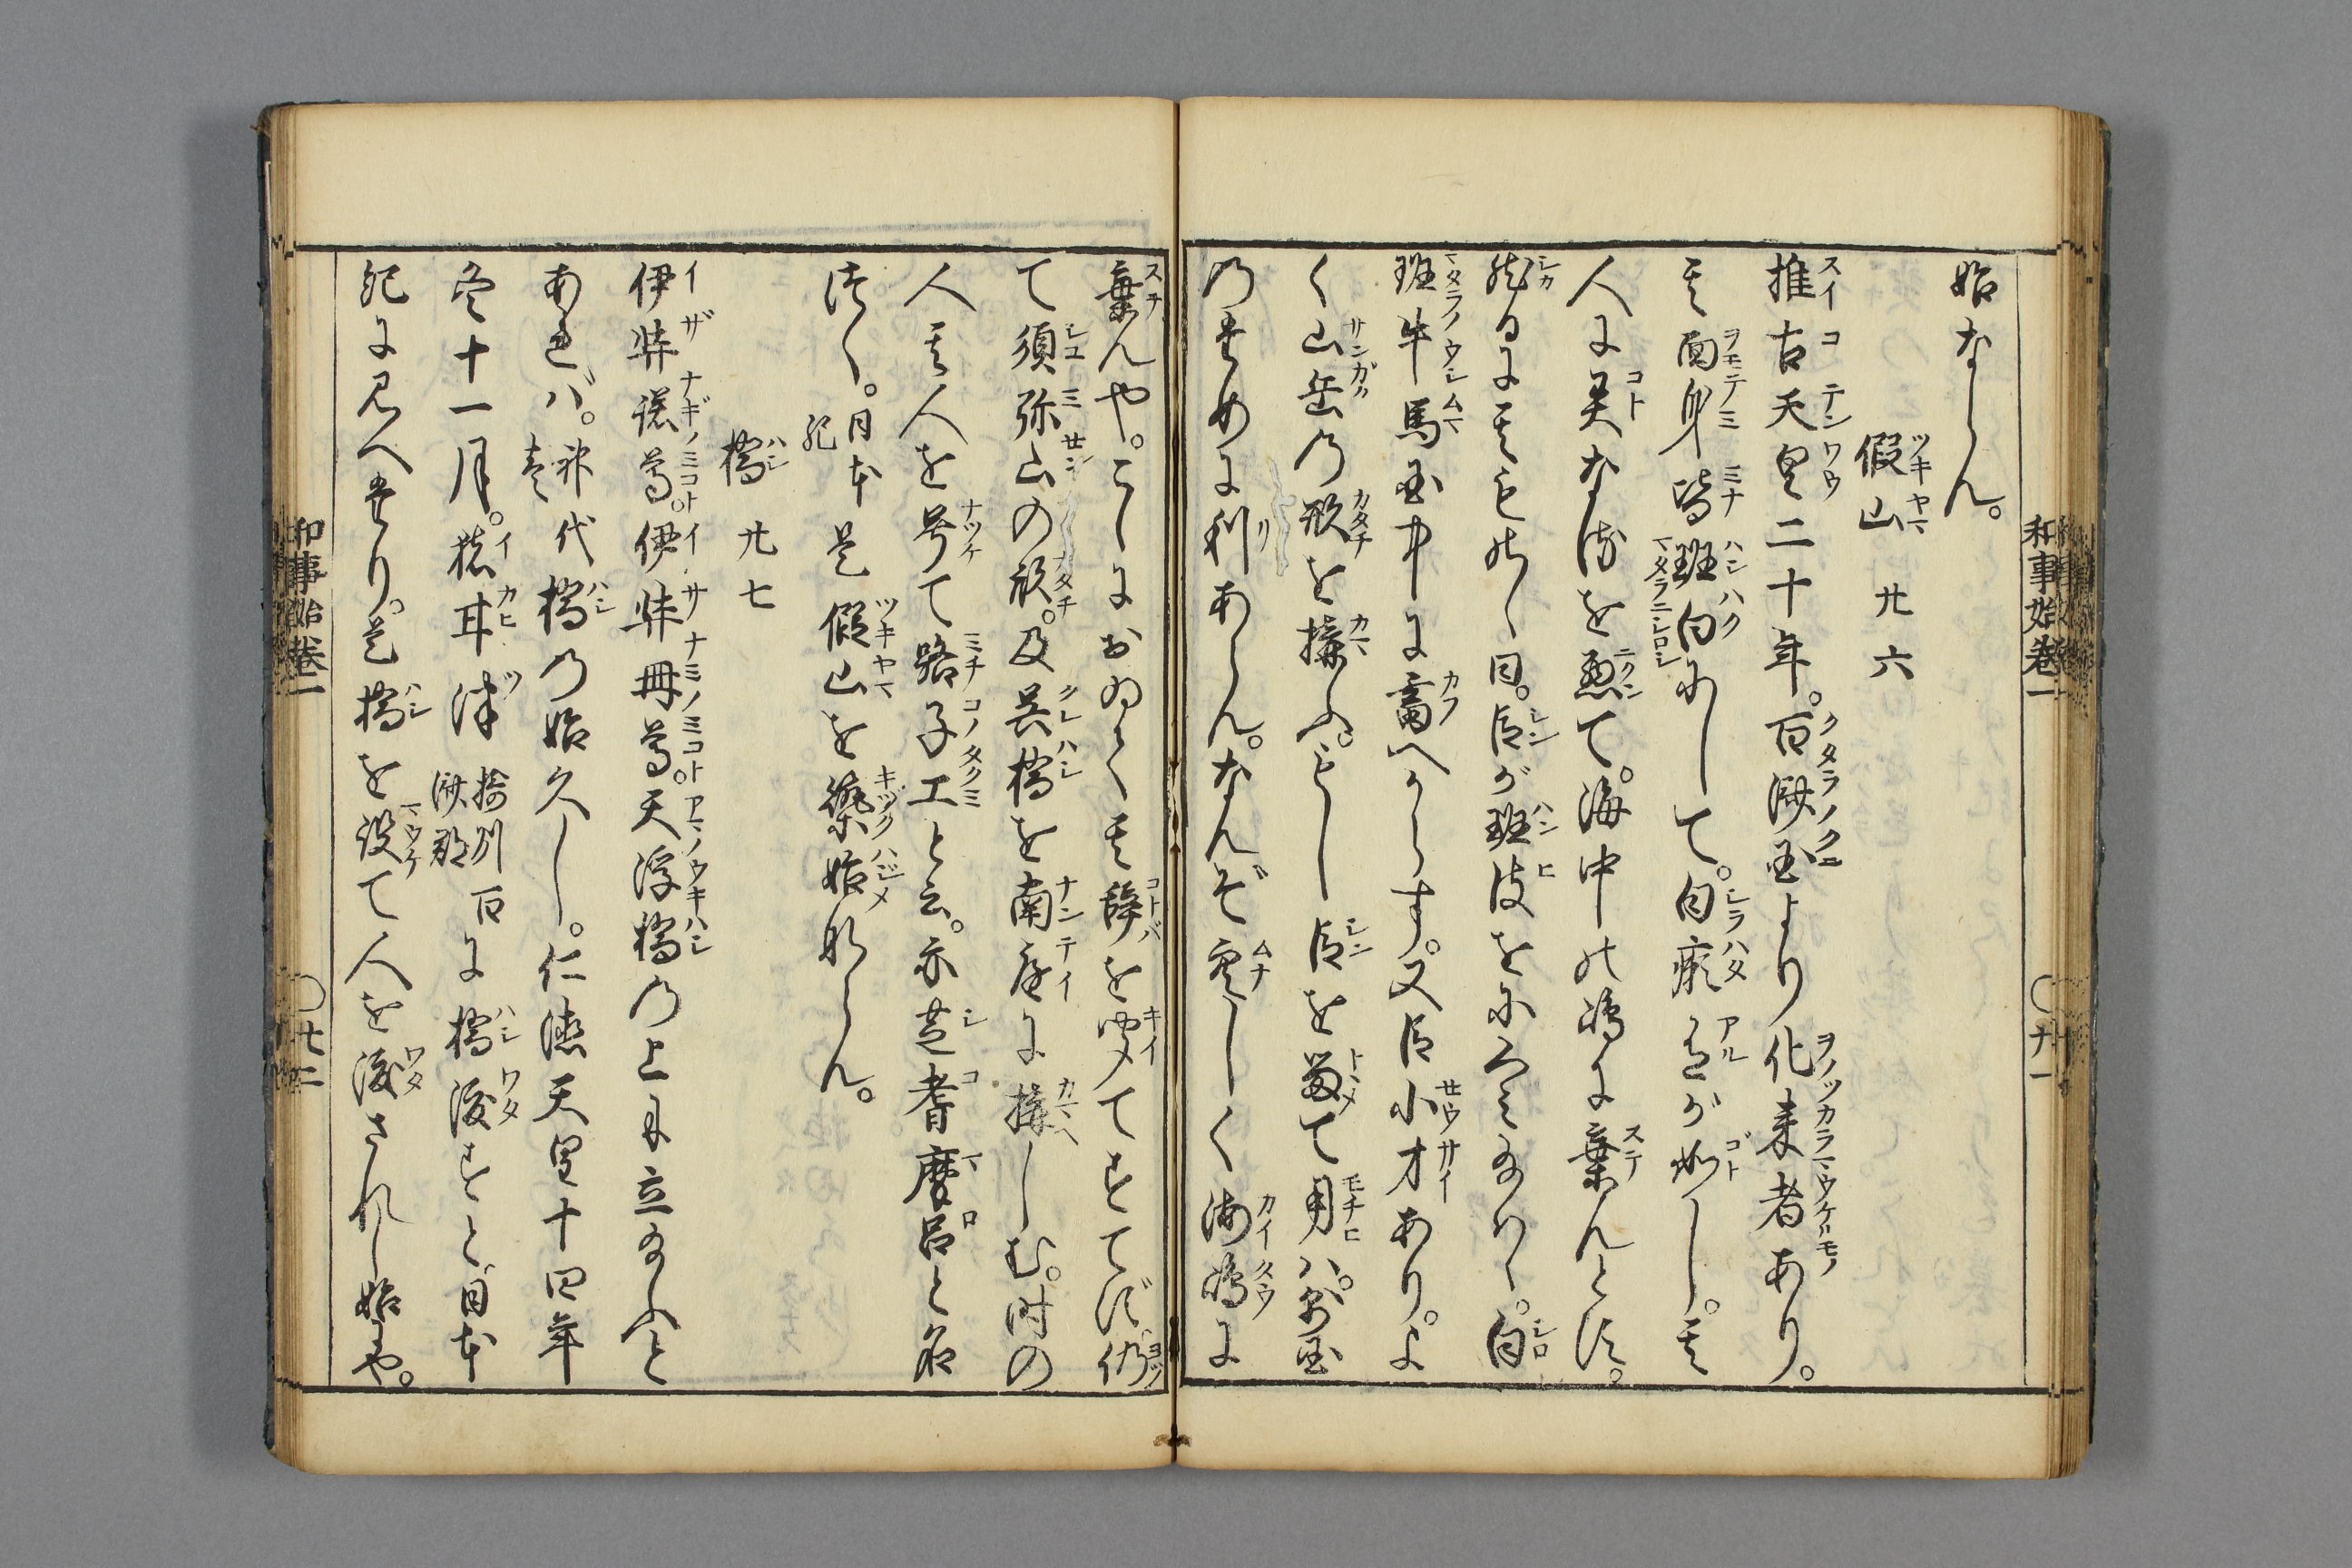 始ならん。
假山　廿六
推古天皇二十年。百済国より化来者あり。
其面身皆斑白にして。白癩有が如し。其
人に異なるを惡て。海中の嶋に棄んとす。
然るに其もの〱曰。臣が斑皮をにくみ給はゞ。白
斑牛馬国中に畜へからす。又臣小才あり。よ
く山岳の形を搆ふ。もし臣を留て用ハ。則国
のために利あらん。なんぞ空しく海嶋に
棄んや。こゝにおゐて其辞を聞てすてず。仍
て須弥山の形。及呉橋を南庭に搆しむ。時の
人其人を号て路子工と云。亦芝耆摩呂と名
つく。日本紀 是假山を築始ならん。
橋　廿七
伊弉諾尊。伊弉冊尊。天浮橋の上に立給ふと
あれバ。神代巻 橋の始久し。仁徳天皇十四年
冬十一月。猪甘津 摂州百済郡 に橋渡すと日本
紀に見へたり。是橋を設て人を渡されし始や。
和事始巻一
〇十一
和事始巻一
〇十二